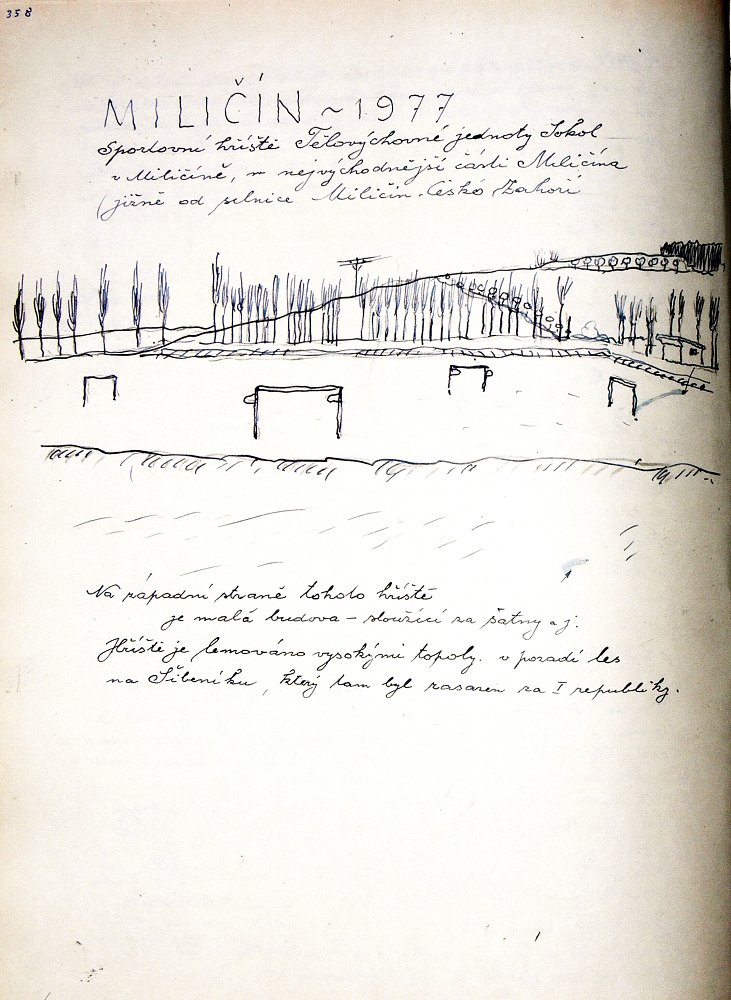 358
MILIČÍN ~ 1977
Sportovní hřiště Tělovýchovné jednoty Sokol
v Miličíně, v nejvýchodnější části Miličína
(jižně od silnice Miličín - České Zahoří
Na západní straně tohoto hřiště
je malá budova - sloužící za šatny a j.
Hřiště je lemováno vysokými topoly. v pozadí les
na Šibeníku, který tam byl zasazen za I republiky.